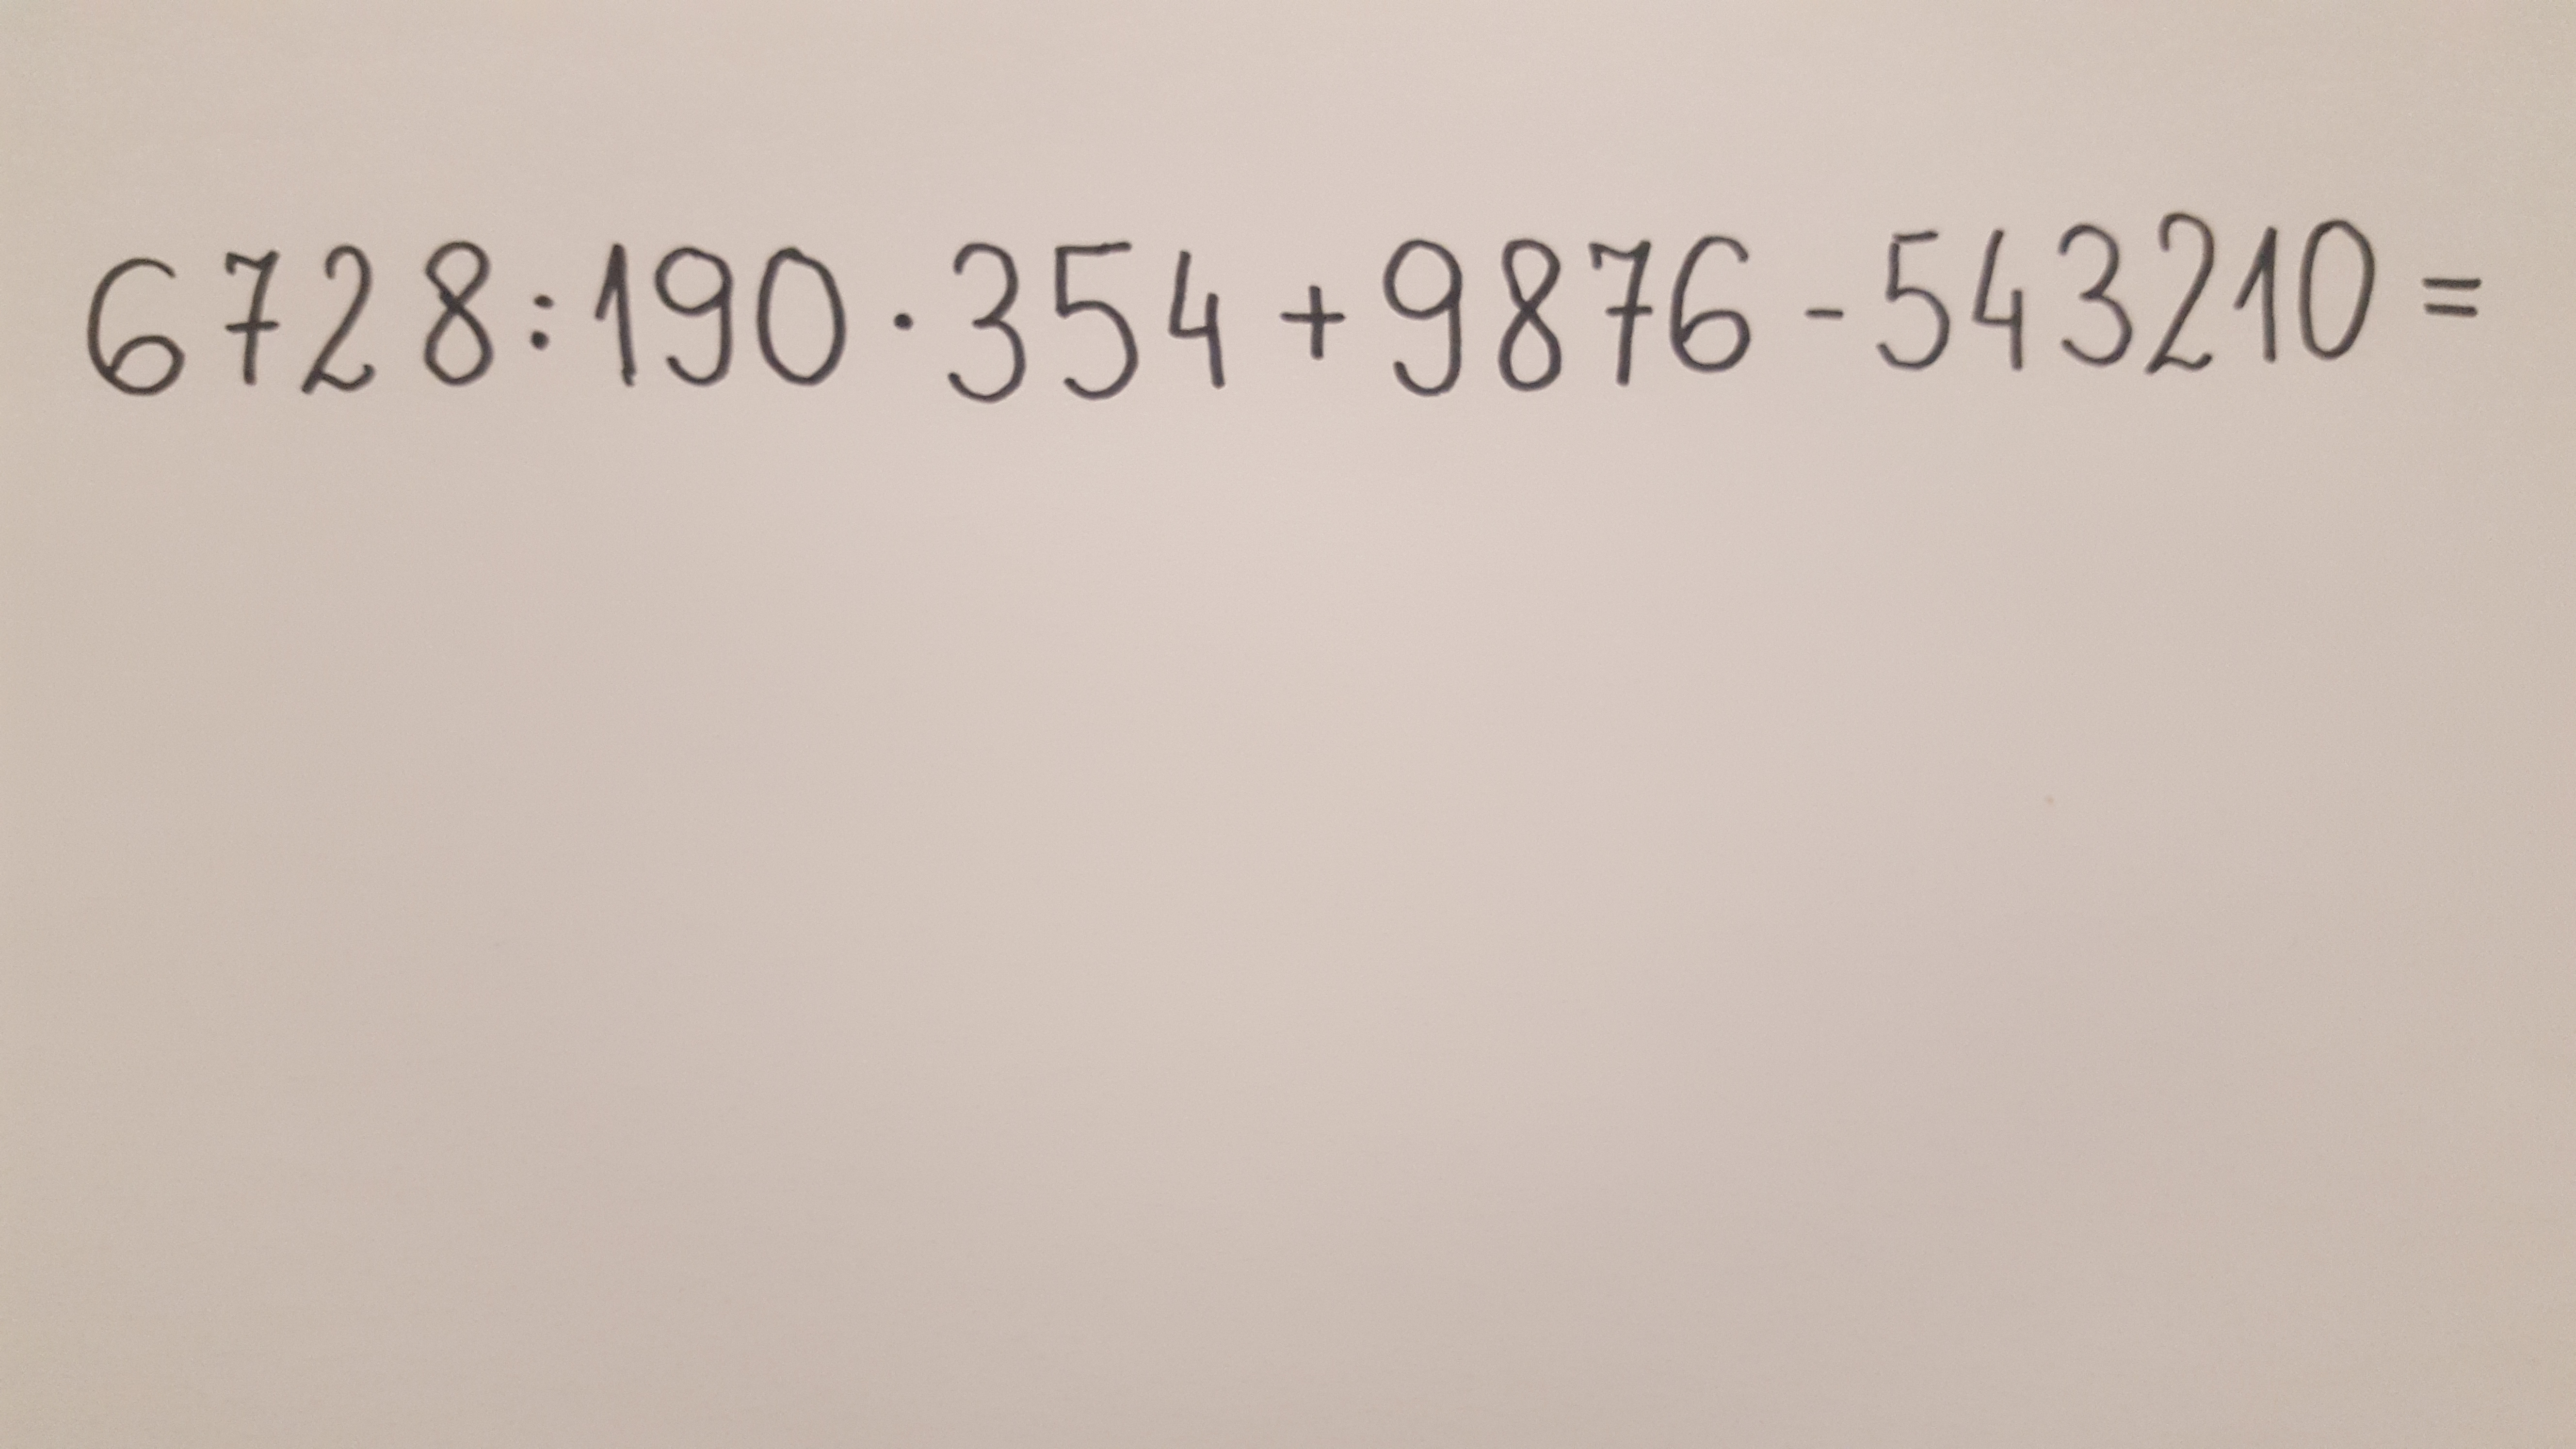 6728:190·354+9876-543210=